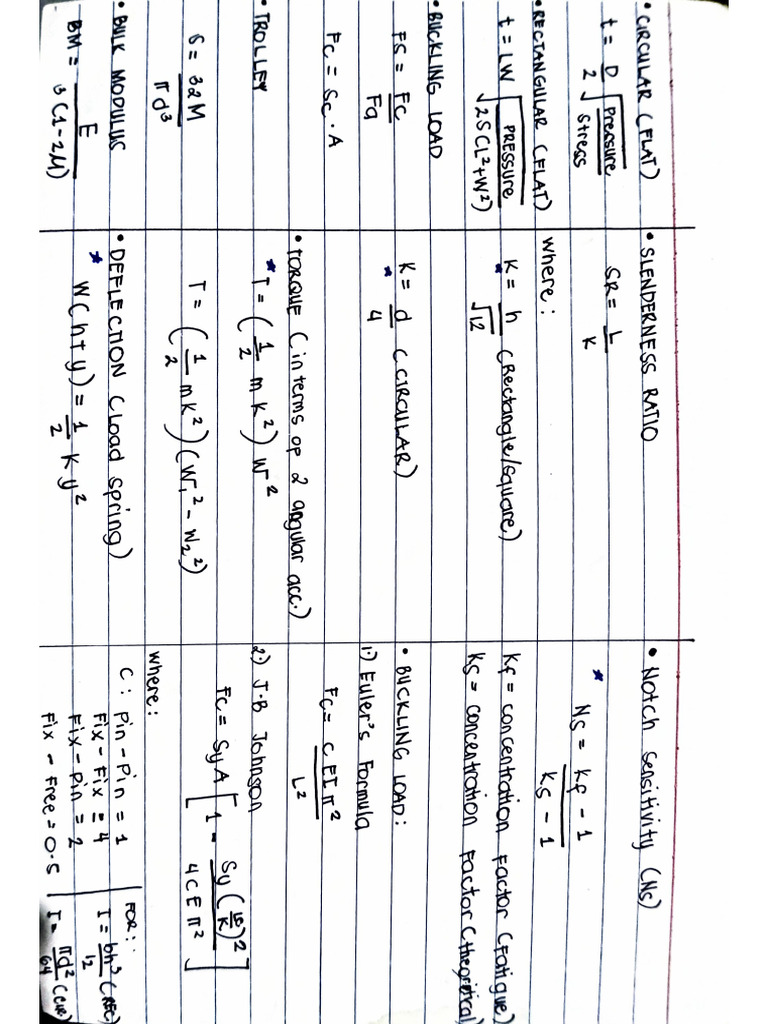 • CIRCULAR (FLAT)
t = D/2 √(Pressure/Stress)
• RECTANGULAR (FLAT)
t = LW √(PRESSURE/2S(L²+W²))
• BUCKLING LOAD
FS = Fc/Fa
Fc = Sc · A
• TROLLEY
S = 32M/πd³
• BULK MODULUS
BM = E/3(1-2M)
• SLENDERNESS RATIO
SR = L/K
where:
* K = h/√12 (Rectangle/square)
* K = d/4 (CIRCULAR)
• TORQUE (in terms op 2 angular acc.)
* T = (1/2 m K²) W²
T = (1/2 m K²)(W₁² - W₂²)
• DEFLECTION (Load spring)
* W(h+y) = 1/2 K y²
• Notch sensitivity (Ns)
* Ns = Kf - 1/Ks - 1
Kf = concentration Factor (Fatigue)
Ks = concentration Factor (theoretical)
• BUCKLING LOAD:
1.) Euler's Formula
Fc = C E I π²/L²
2.) J.B Johnson
Fc = Sy A [1 - Sy (Le/K)²/4 C E π²]
where:
C: Pin - Pin = 1
Fix - Fix = 4
Fix - Pin = 2
Fix - Free = 0.5
FOR:
I = bh³/12 (REC)
I = πd²/64 (CIR)